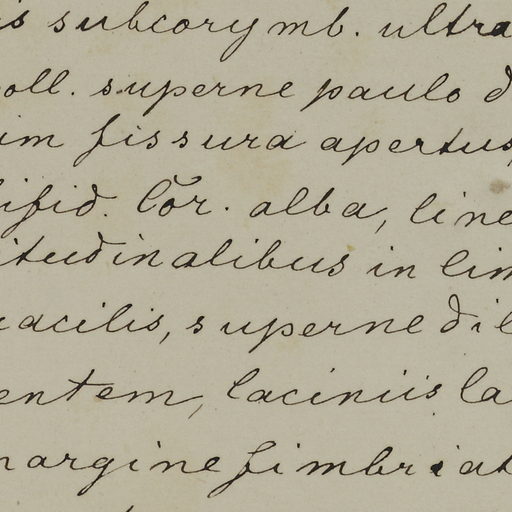 is subcorymb. ultra
oll. superne paulo d
im fissura apertus,
ifid. Cor. alba, line
itudinalibus in lim
racilis, superne dil
entem, laciniis la
margine fimbriat